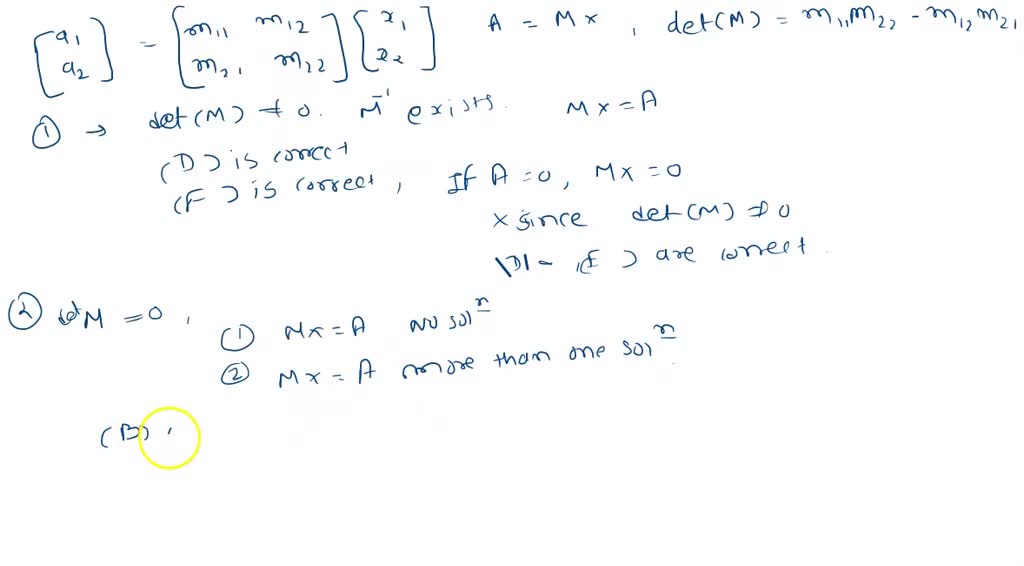 [a1 a2] = [m11 m12 m21 m22] [x1 x2] A = Mx , det(M) = m11m22 - m12m21
① → det(M) ≠ 0. M⁻¹ exists. Mx = A
(D) is correct
(F) is correct, If A = 0, Mx = 0
x since det(M) ≠ 0
are correct.
② det M = 0,
① Mx = A no solⁿ
② Mx = A more than one solⁿ.
(B)